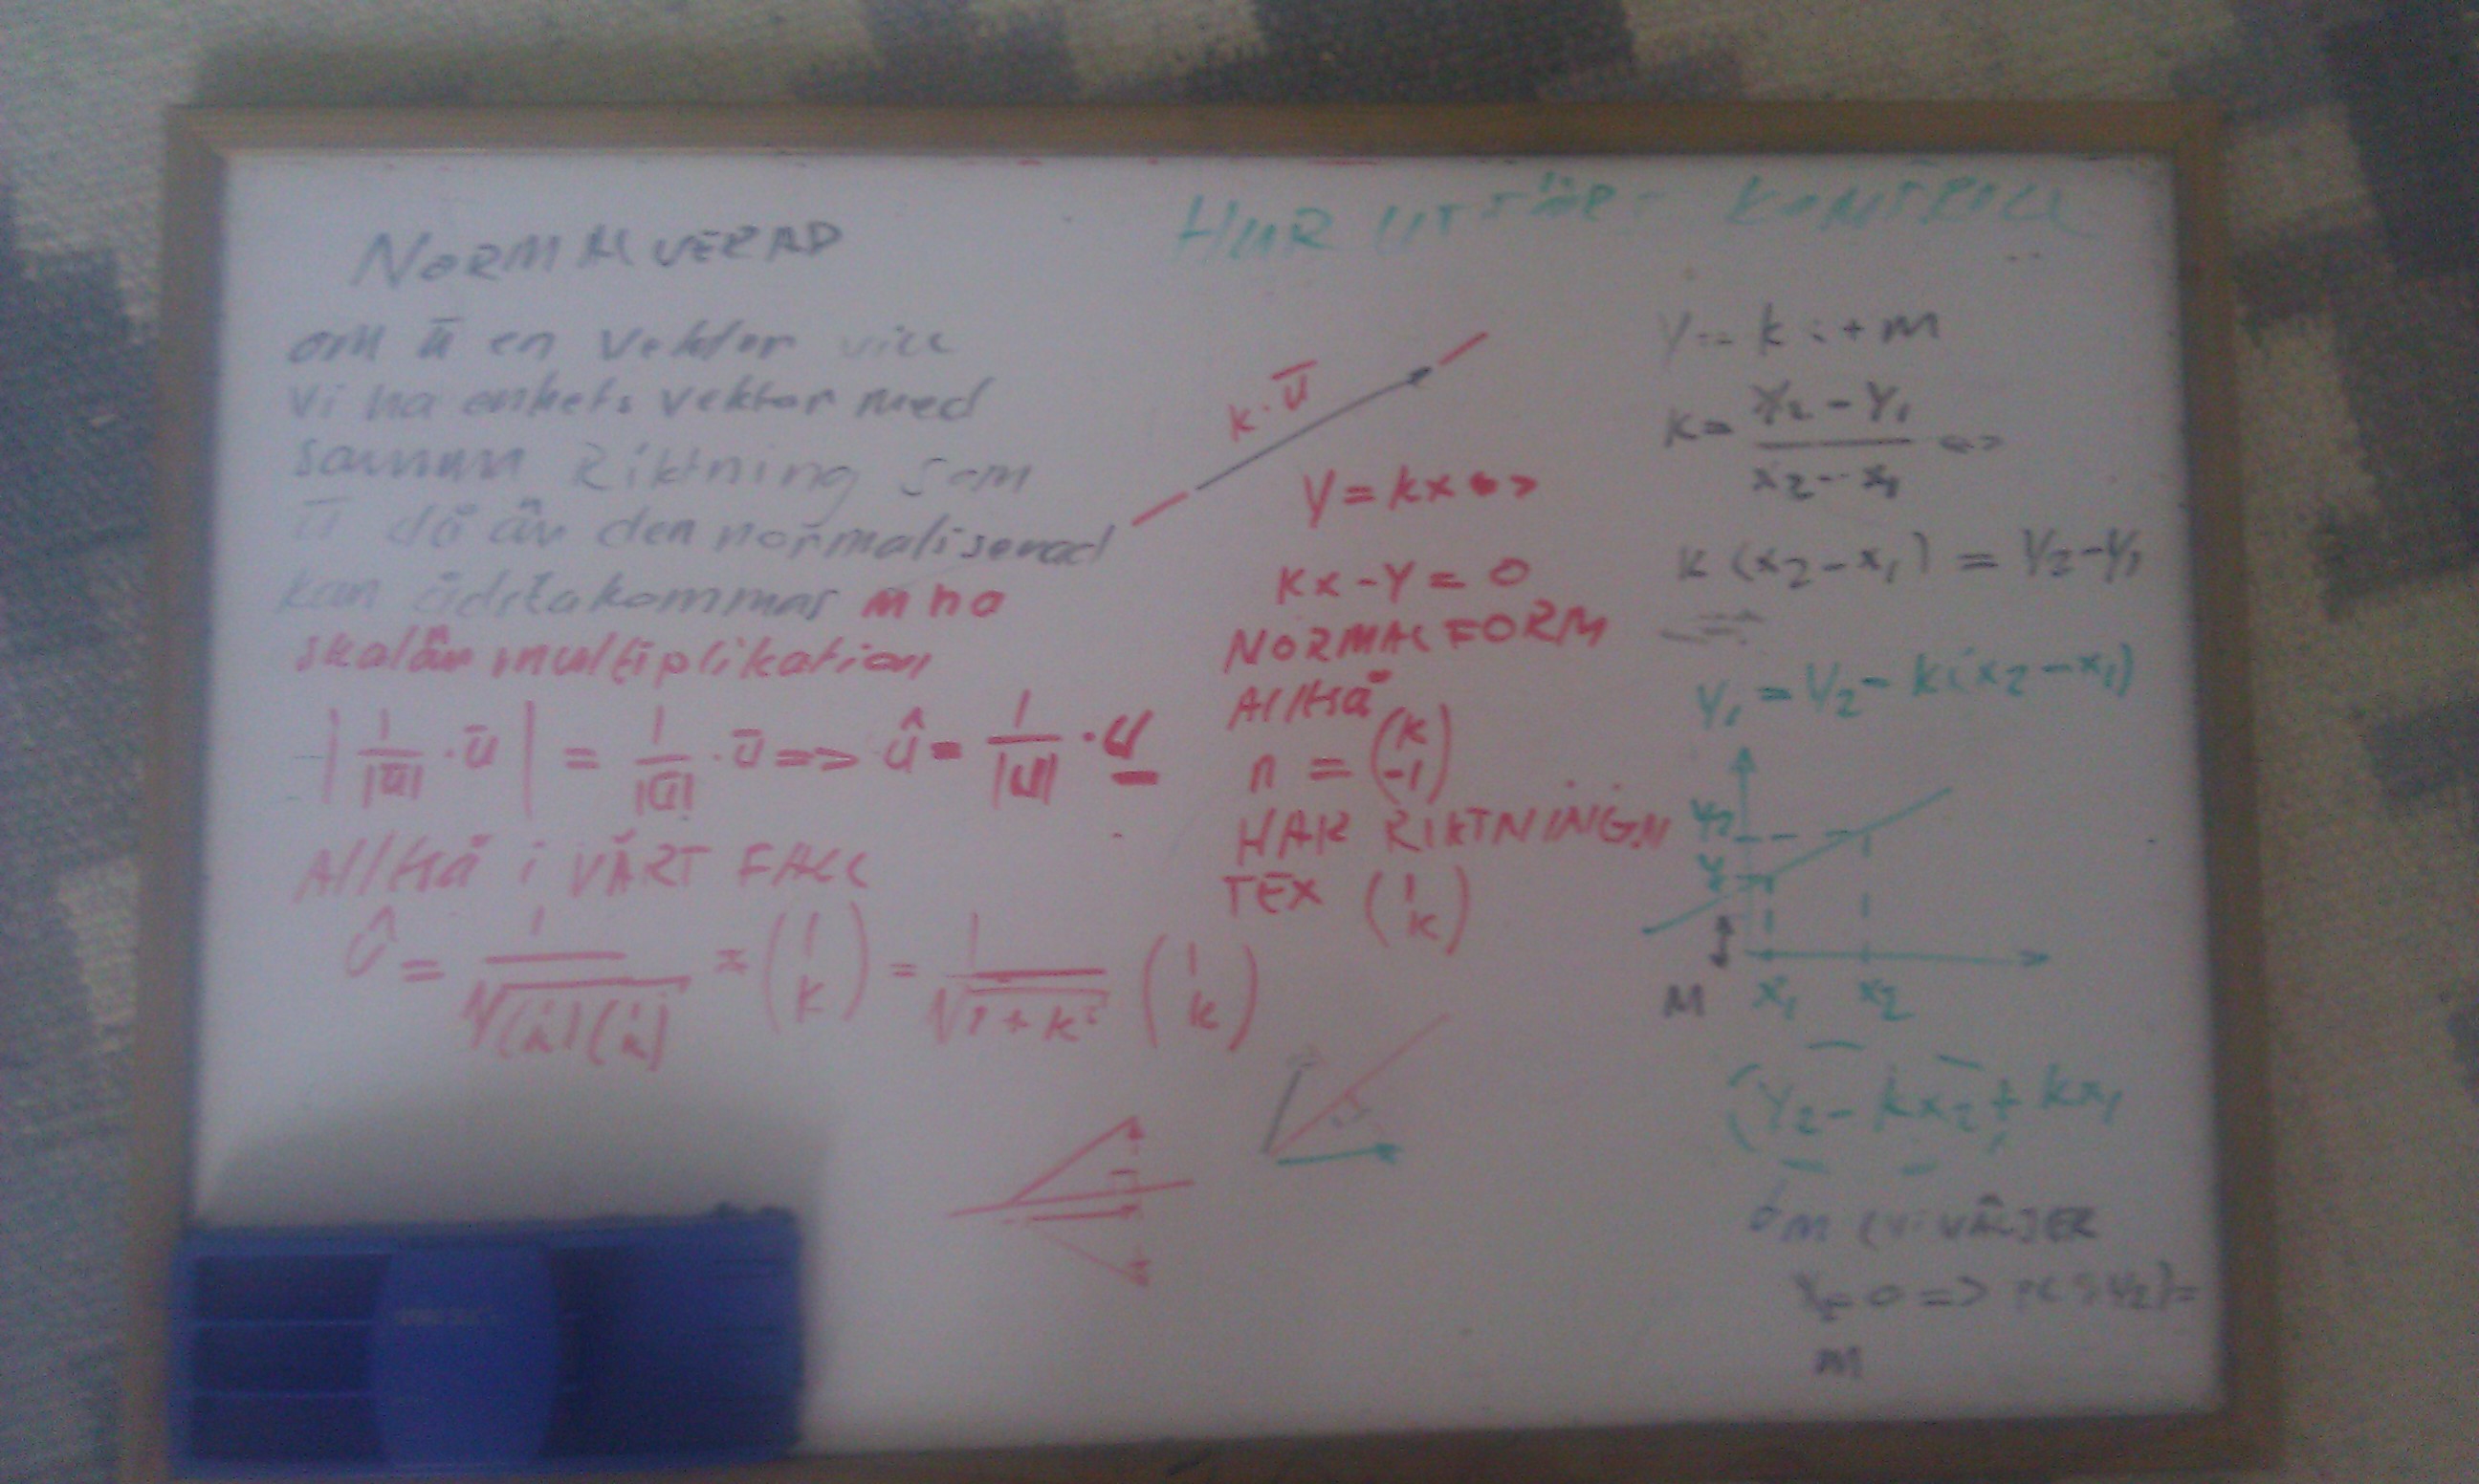 NORMALVERAD
om ū en vektor vill
vi ha enhets vektor med
samma Riktning som
ū då är den normaliserad
kan ådstakommas mha
skalär multiplikation
| 1/|ū| · ū | = 1/|ū| · ū => û = 1/|u| · u
Alltså i VÅRT FALL
û = 1/√(1 k)(1 k) * (1 k) = 1/√(1 + k²) (1 k)
k · ū
y = kx <=>
kx - y = 0
NORMAL FORM
Alltså
n = (k -1)
HAR RIKTNINGEN
TEX (1 k)
HUR
y = k + m
k = (y₂ - y₁)/(x₂ - x₁) <=>
k (x₂ - x₁) = y₂ - y₁
y₁ = y₂ - k(x₂ - x₁)
y₂
y₁
M x₁ x₂
(y₂ - kx₂) + kx₁
om (vi VÄLJER
x₂ = 0 =>
m